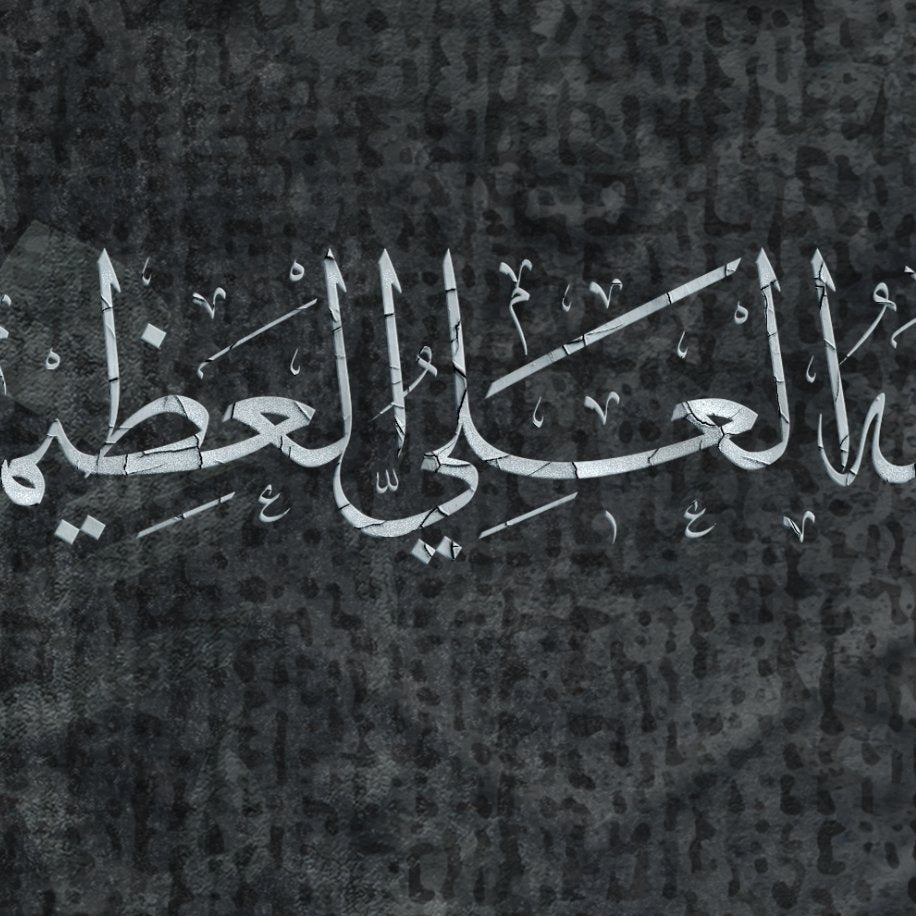 العلي العظيم